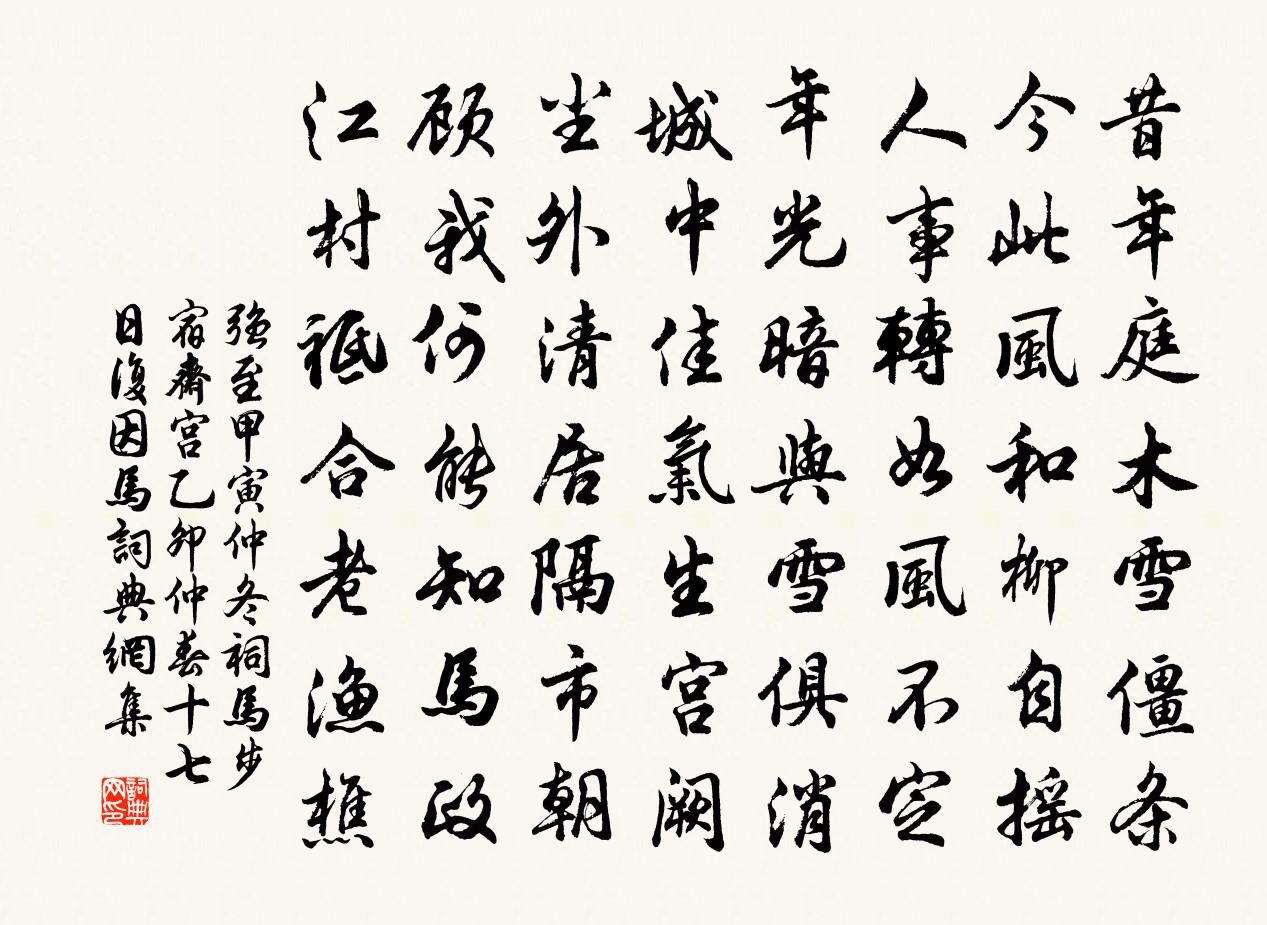 昔年庭木雪僵条
今此風和柳自摇
人事轉如風不定
年光暗與雪俱消
城中佳氣生宫闕
坐外清居隔市朝
顾我何能知馬政
江村祗合老漁樵
强至甲寅仲冬祠馬步
宿齋宫乙卯仲春十七
日復因馬詞典網集
詞典网印